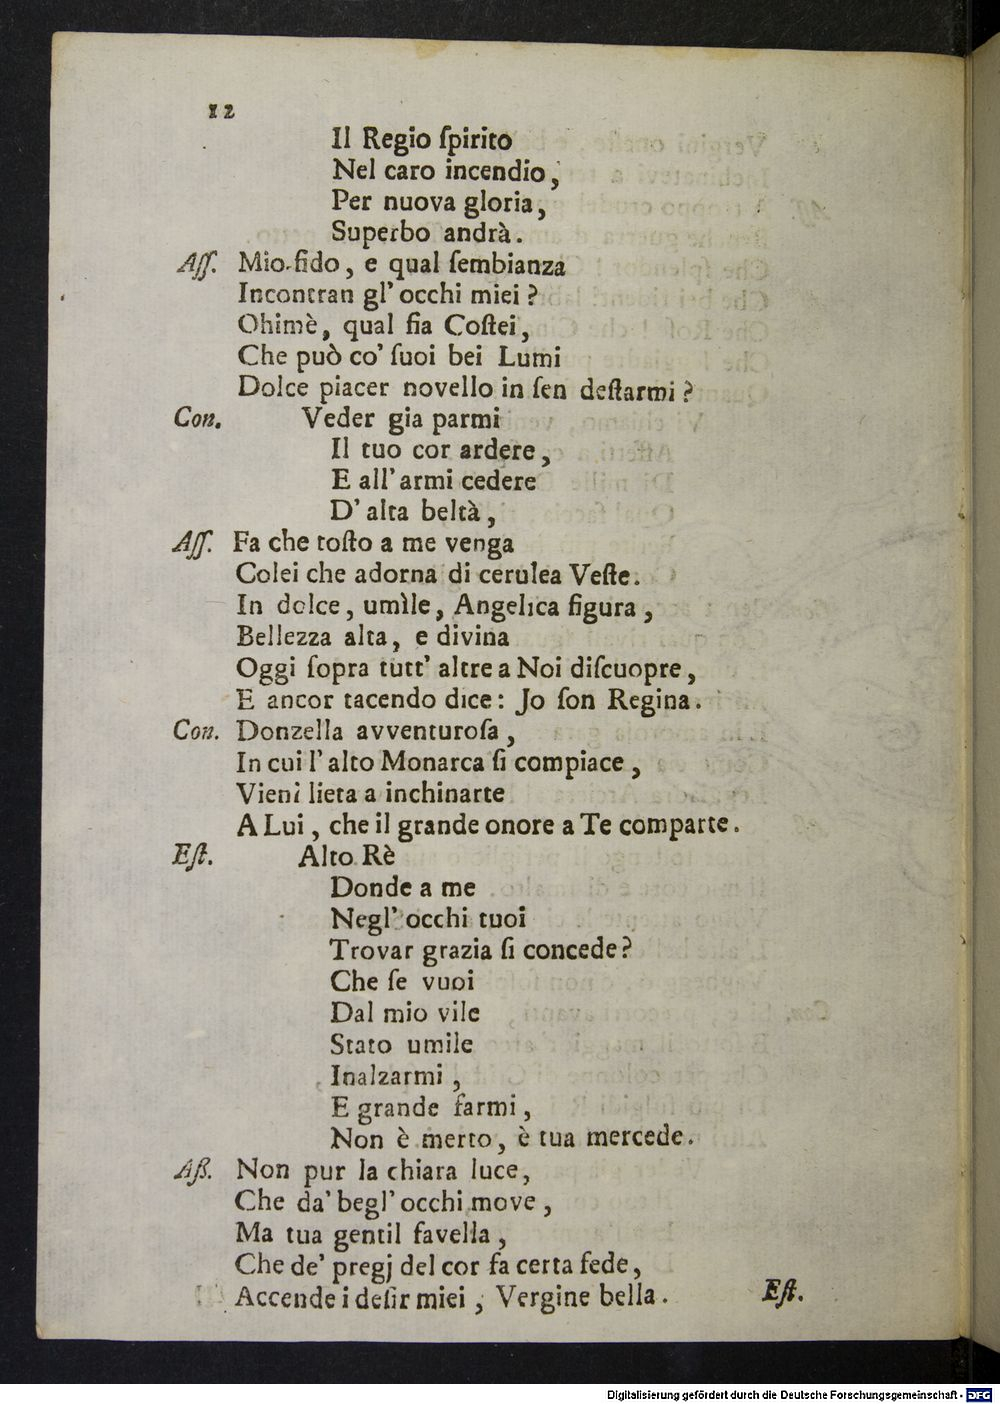 12
Il Regio ſpirito
Nel caro incendio,
Per nuova gloria,
Superbo andrà.
Aſſ. Mio fido, e qual ſembianza
Incontran gl' occhi miei?
Ohimè, qual fia Coſtei,
Che può co' ſuoi bei Lumi
Dolce piacer novello in ſen deſtarmi?
Con. Veder gia parmi
Il tuo cor ardere,
E all' armi cedere
D' alta beltà,
Aſſ. Fa che toſto a me venga
Colei che adorna di cerulea Veſte.
In dolce, umìle, Angelica figura,
Bellezza alta, e divina
Oggi ſopra tutt' altre a Noi diſcuopre,
E ancor tacendo dice: Jo ſon Regina.
Con. Donzella avventuroſa,
In cui l' alto Monarca ſi compiace,
Vieni lieta a inchinarte
A Lui, che il grande onore a Te comparte.
Eſt. Alto Rè
Donde a me
Negl' occhi tuoi
Trovar grazia ſi concede?
Che ſe vuoi
Dal mio vile
Stato umile
Inalzarmi,
E grande farmi,
Non è merto, è tua mercede.
Aß. Non pur la chiara luce,
Che da' begl' occhi move,
Ma tua gentil favella,
Che de' pregj del cor fa certa fede,
Accende i deſir miei, Vergine bella.
Eſt.
Digitalisierung gefördert durch die Deutsche Forschungsgemeinschaft - DFG